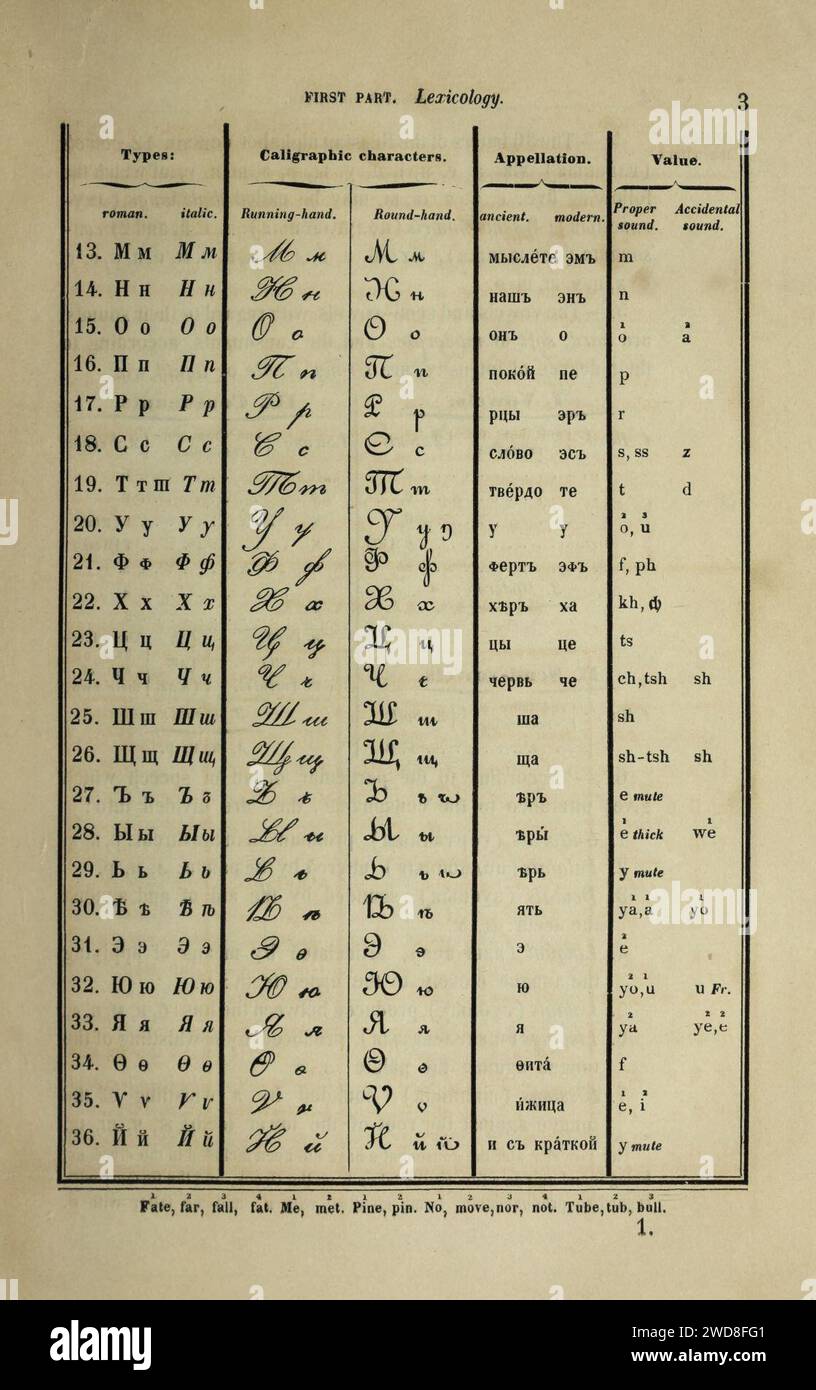 FIRST PART. Lexicology. 3
Types: Caligraphic characters. Appellation. Value.
roman. italic. Running-hand. Round-hand. ancient. modern. Proper sound. Accidental sound.
13. М м М м М м М м мыслéте эмъ m
14. Н н Н н Н н Н н нашъ энъ n
15. О о О о О о О о онъ о o¹ a²
16. П п П п П п П п покóй пе p
17. Р р Р р Р р Р р рцы эръ r
18. С с С с С с С с слóво эсъ s, ss z
19. Т т ш Т т Т т Т т твéрдо те t d
20. У у У у У у У у у у o², u³
21. Ф ф Ф ф Ф ф Ф ф фертъ эфъ f, ph
22. Х х Х х Х х Х х хѣръ ха kh,
23. Ц ц Ц ц Ц ц Ц ц цы це ts
24. Ч ч Ч ч Ч ч Ч ч червь че ch, tsh sh
25. Ш ш Ш ш Ш ш Ш ш ша sh
26. Щ щ Щ щ Щ щ Щ щ ща sh-tsh sh
27. Ъ ъ Ъ ъ Ъ ъ Ъ ъ ѣръ e mute
28. Ы ы Ы ы Ы ы Ы ы ѣры́ e¹ thick we¹
29. Ь ь Ь ь Ь ь Ь ь ѣрь y mute
30. Ѣ ѣ Ѣ ѣ Ѣ ѣ Ѣ ѣ ять ya¹, a¹ yo¹
31. Э э Э э Э э Э э э e²
32. Ю ю Ю ю Ю ю Ю ю ю yo², u¹ u Fr.
33. Я я Я я Я я Я я я ya² ye², e²
34. Ѳ ѳ Ѳ ѳ Ѳ ѳ Ѳ ѳ ѳитá f
35. Ѵ ѵ Ѵ ѵ Ѵ ѵ Ѵ ѵ и́жица e¹, i²
36. Й й Й й Й й Й й и съ крáткой y mute
1 2 3 4 1 2 1 2 1 2 3 4 1 2 3
Fate, far, fall, fat. Me, met. Pine, pin. No, move, nor, not. Tube, tub, bull.
1.
alamy
Image ID: 2WD8FG1
www.alamy.com